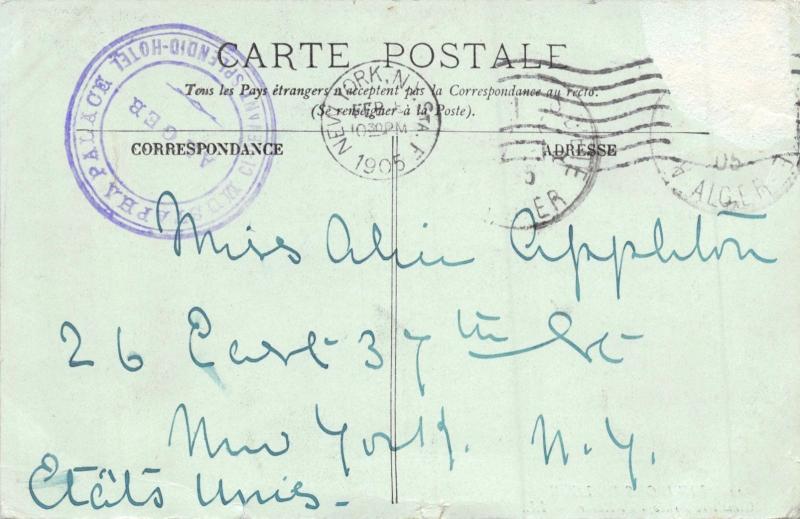 CARTE POSTALE
Tous les Pays étrangers n'acceptent pas la Correspondance au recto.
(Se renseigner à la Poste).
CORRESPONDANCE
ADRESSE
SPLENDID-HOTEL
ALGER
NEW YORK, N.Y. STA. F.
FEB
1030PM
1905
05
ALGER
Miss Alice Appleton
26 East 37th St
New York. N.Y.
Etâts Unis-